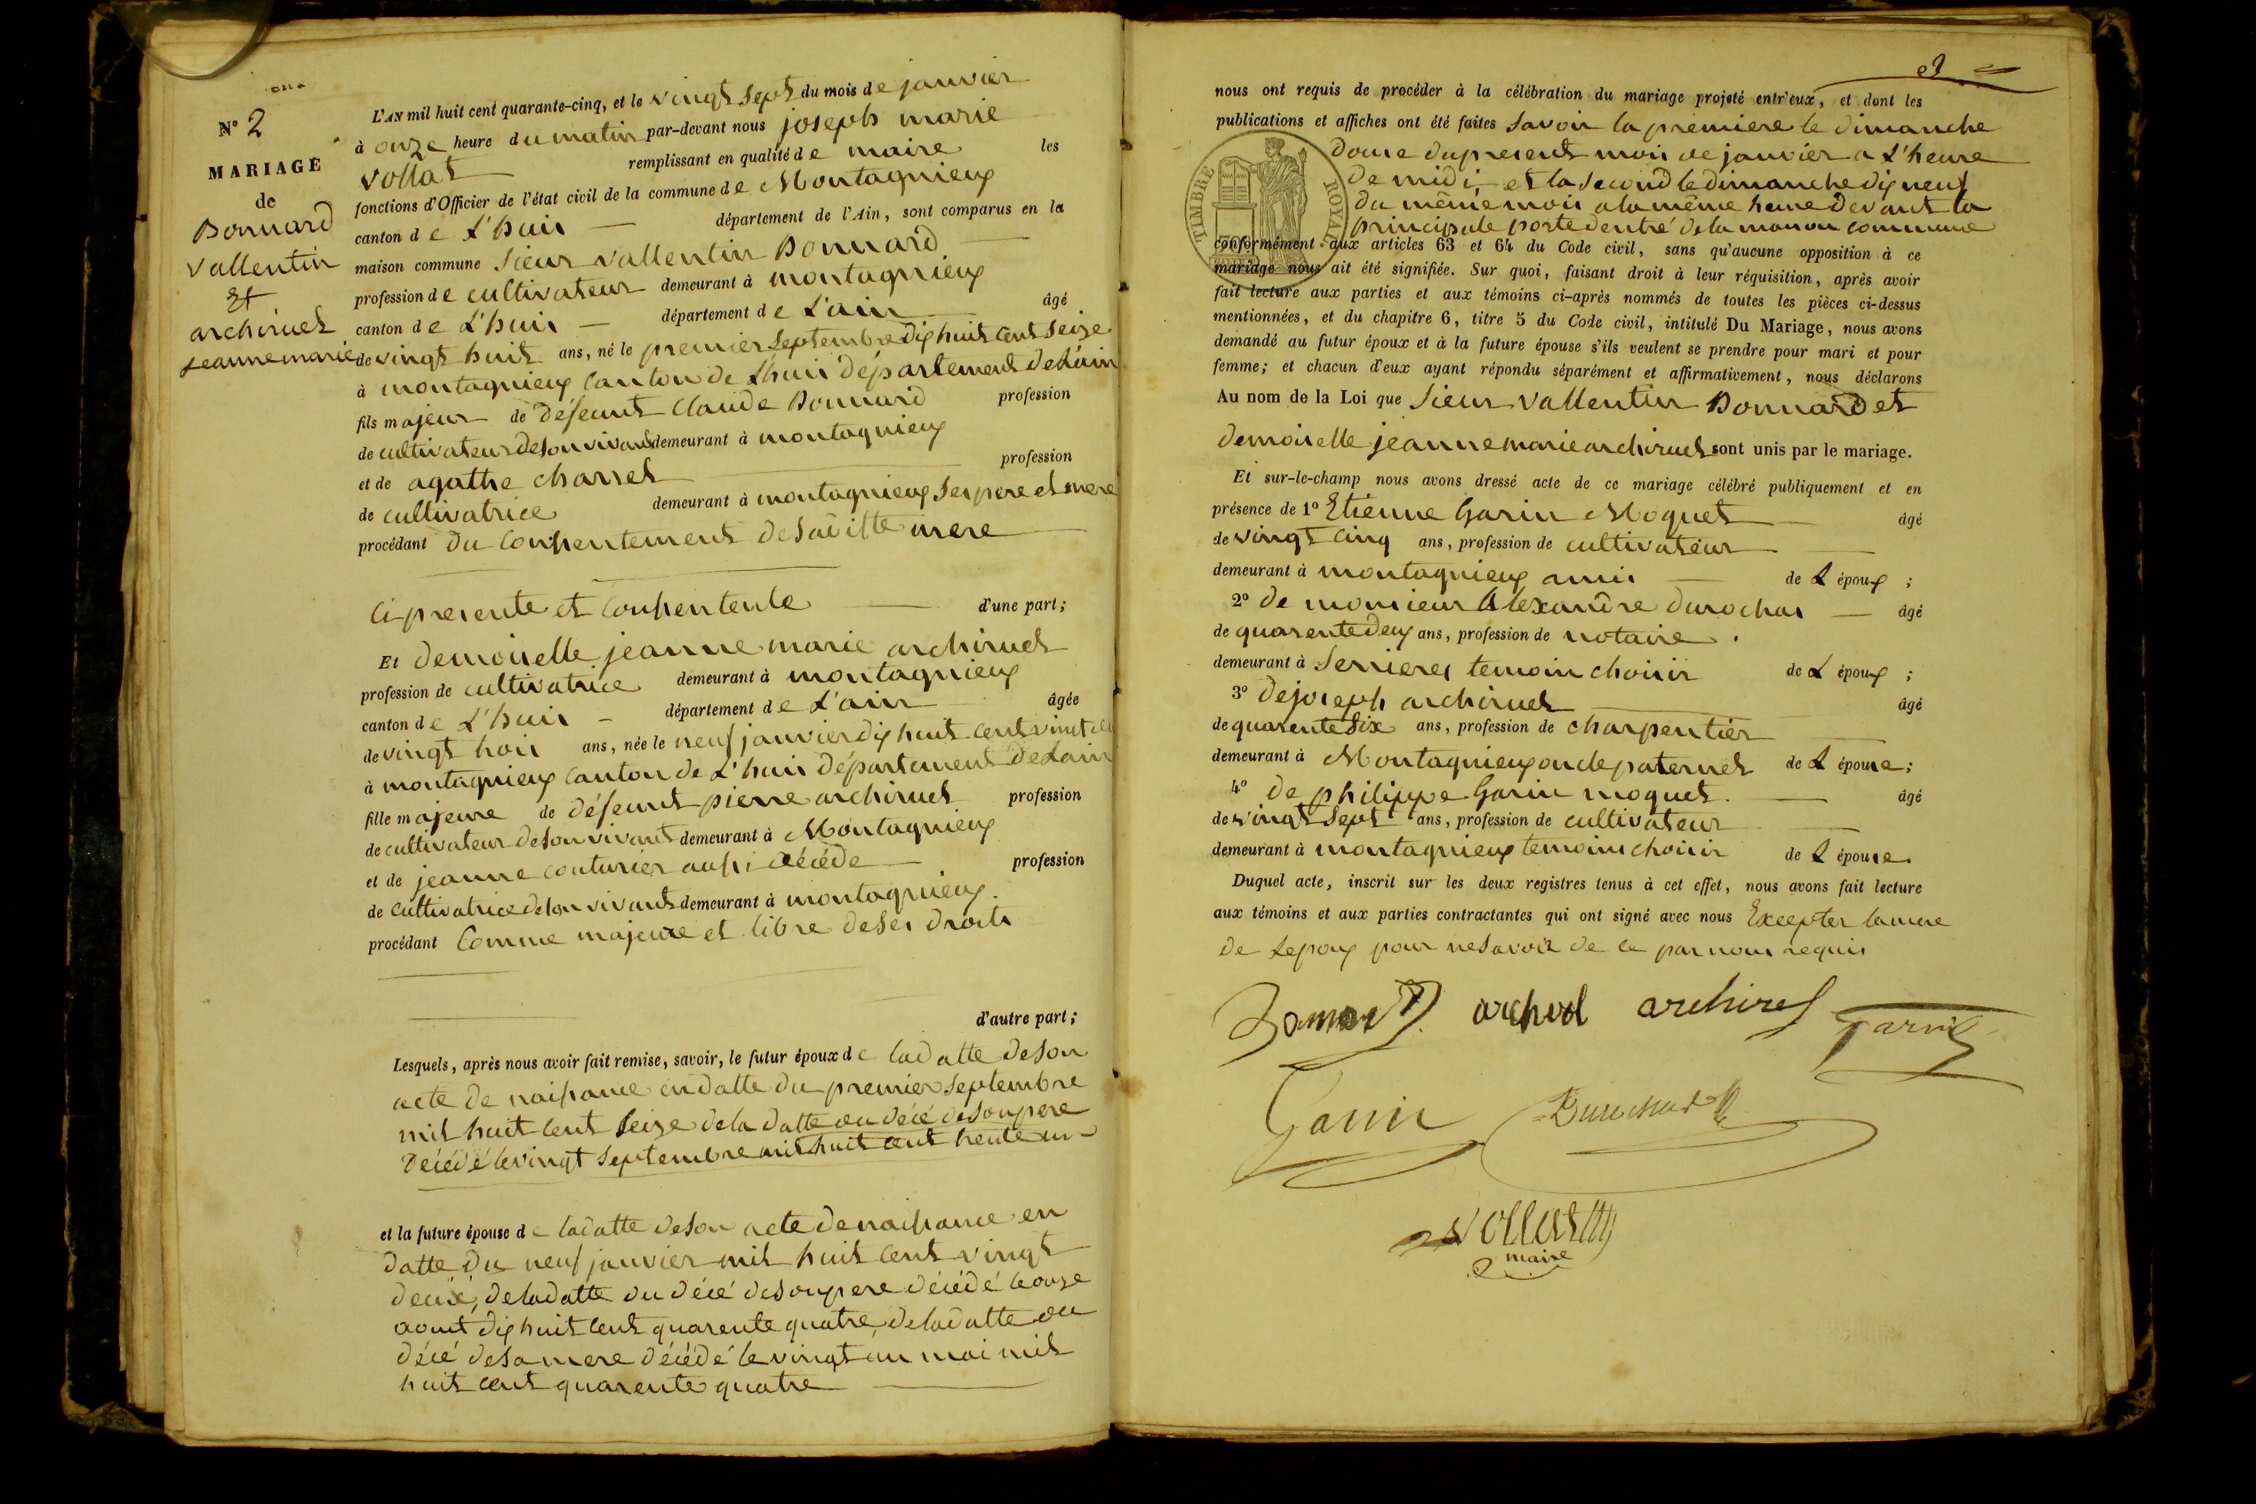 N° 2
MARIAGE
de
Bonnard
Vallentin
Et
archiruel
jeanne marie
L'AN mil huit cent quarante-cinq, et le vingt sept du mois de janvier
à onze heure du matin par-devant nous joseph marie
vollat remplissant en qualité de maire les
fonctions d'Officier de l'état civil de la commune de Montagnieux
canton de L'huis département de l'Ain, sont comparus en la
maison commune Sieur Vallentin Bonnard
profession de cultivateur demeurant à montagnieux
canton de L'huis département de L'ain âgé
de vingt huit ans, né le premier septembre dix huit cent seize
à montagnieux canton de L'huis département de L'ain
fils majeur de défeunt Claude Bonnard profession
de cultivateur de son vivant demeurant à montagnieux
et de agathe charret profession
de cultivatrice demeurant à montagnieux ses pere et mere
procédant du Conhentement de sa ditte mere
Ci presente et Conhentente d'une part;
Et demoiselle jeanne marie archiruel
profession de cultivatrice demeurant à montagnieux
canton de L'huis département de L'ain âgée
de vingt trois ans, née le neuf janvier dix huit cent vint
à montagnieux canton de L'huis département de Lain
fille majeure de défeunt pierre archiruel profession
de cultivateur de son vivant demeurant à Montagnieux
et de jeanne couturier aussi décéde profession
de cultivatrice de son vivant demeurant à montagnieux.
procédant Comme majeure et libre de ses droits
d'autre part;
Lesquels, après nous avoir fait remise, savoir, le futur époux de la datte de son
acte de naissance en datte du premier septembre
mil huit cent seize de la datte du décé de son pere
décédé le vingt septembre mil huit cent trente un
et la future épouse de la datte de son acte de naissance en
datte du neuf janvier mil huit cent vingt
deux, de la datte du décé de son pere décédé le onze
aout dix huit cent quarente quatre, de la datte du
décé de sa mere décédé le vingt un mai mil
huit cent quarente quatre
nous ont requis de procéder à la célébration du mariage projeté entr'eux, et dont les
publications et affiches ont été faites savoir la premiere le dimanche
douse du present mois de janvier a L'heure
de midi et la second le dimanche dix neuf
du même mois a la même heure devant la
principale porte dentré de la maison commune
TIMBRE ROYAL
conformément aux articles 63 et 64 du Code civil, sans qu'aucune opposition à ce
mariage nous ait été signifiée. Sur quoi, faisant droit à leur réquisition, après avoir
fait lecture aux parties et aux témoins ci-après nommés de toutes les pièces ci-dessus
mentionnées, et du chapitre 6, titre 5 du Code civil, intitulé Du Mariage, nous avons
demandé au futur époux et à la future épouse s'ils veulent se prendre pour mari et pour
femme; et chacun d'eux ayant répondu séparément et affirmativement, nous déclarons
Au nom de la Loi que Sieur Vallentin Bonnard et
demoiselle jeanne marie archiruel sont unis par le mariage.
Et sur-le-champ nous avons dressé acte de ce mariage célébré publiquement et en
présence de 1° Etienne Garin Moquet âgé
de vingt cinq ans, profession de cultivateur
demeurant à montagnieux amis de L époux ;
2° de monsieur Alexandre Durochat âgé
de quarente deux ans, profession de notaire.
demeurant à Serrieres temoin choisir de L époux ;
3° de joseph archiruel âgé
de quarente six ans, profession de charpentier
demeurant à Montagnieux oncle paternel de L épouse ;
4° de philippe Garin moquet. âgé
de vingt sept ans, profession de cultivateur
demeurant à montagnieux temoins choisir de L épouse.
Duquel acte, inscrit sur les deux registres tenus à cet effet, nous avons fait lecture
aux témoins et aux parties contractantes qui ont signé avec nous Excepter la mere
de Lepoux pour ne savoir de ce par nous requis
Bonnard archirel Garin
Garin Durochat
Vollat
maire